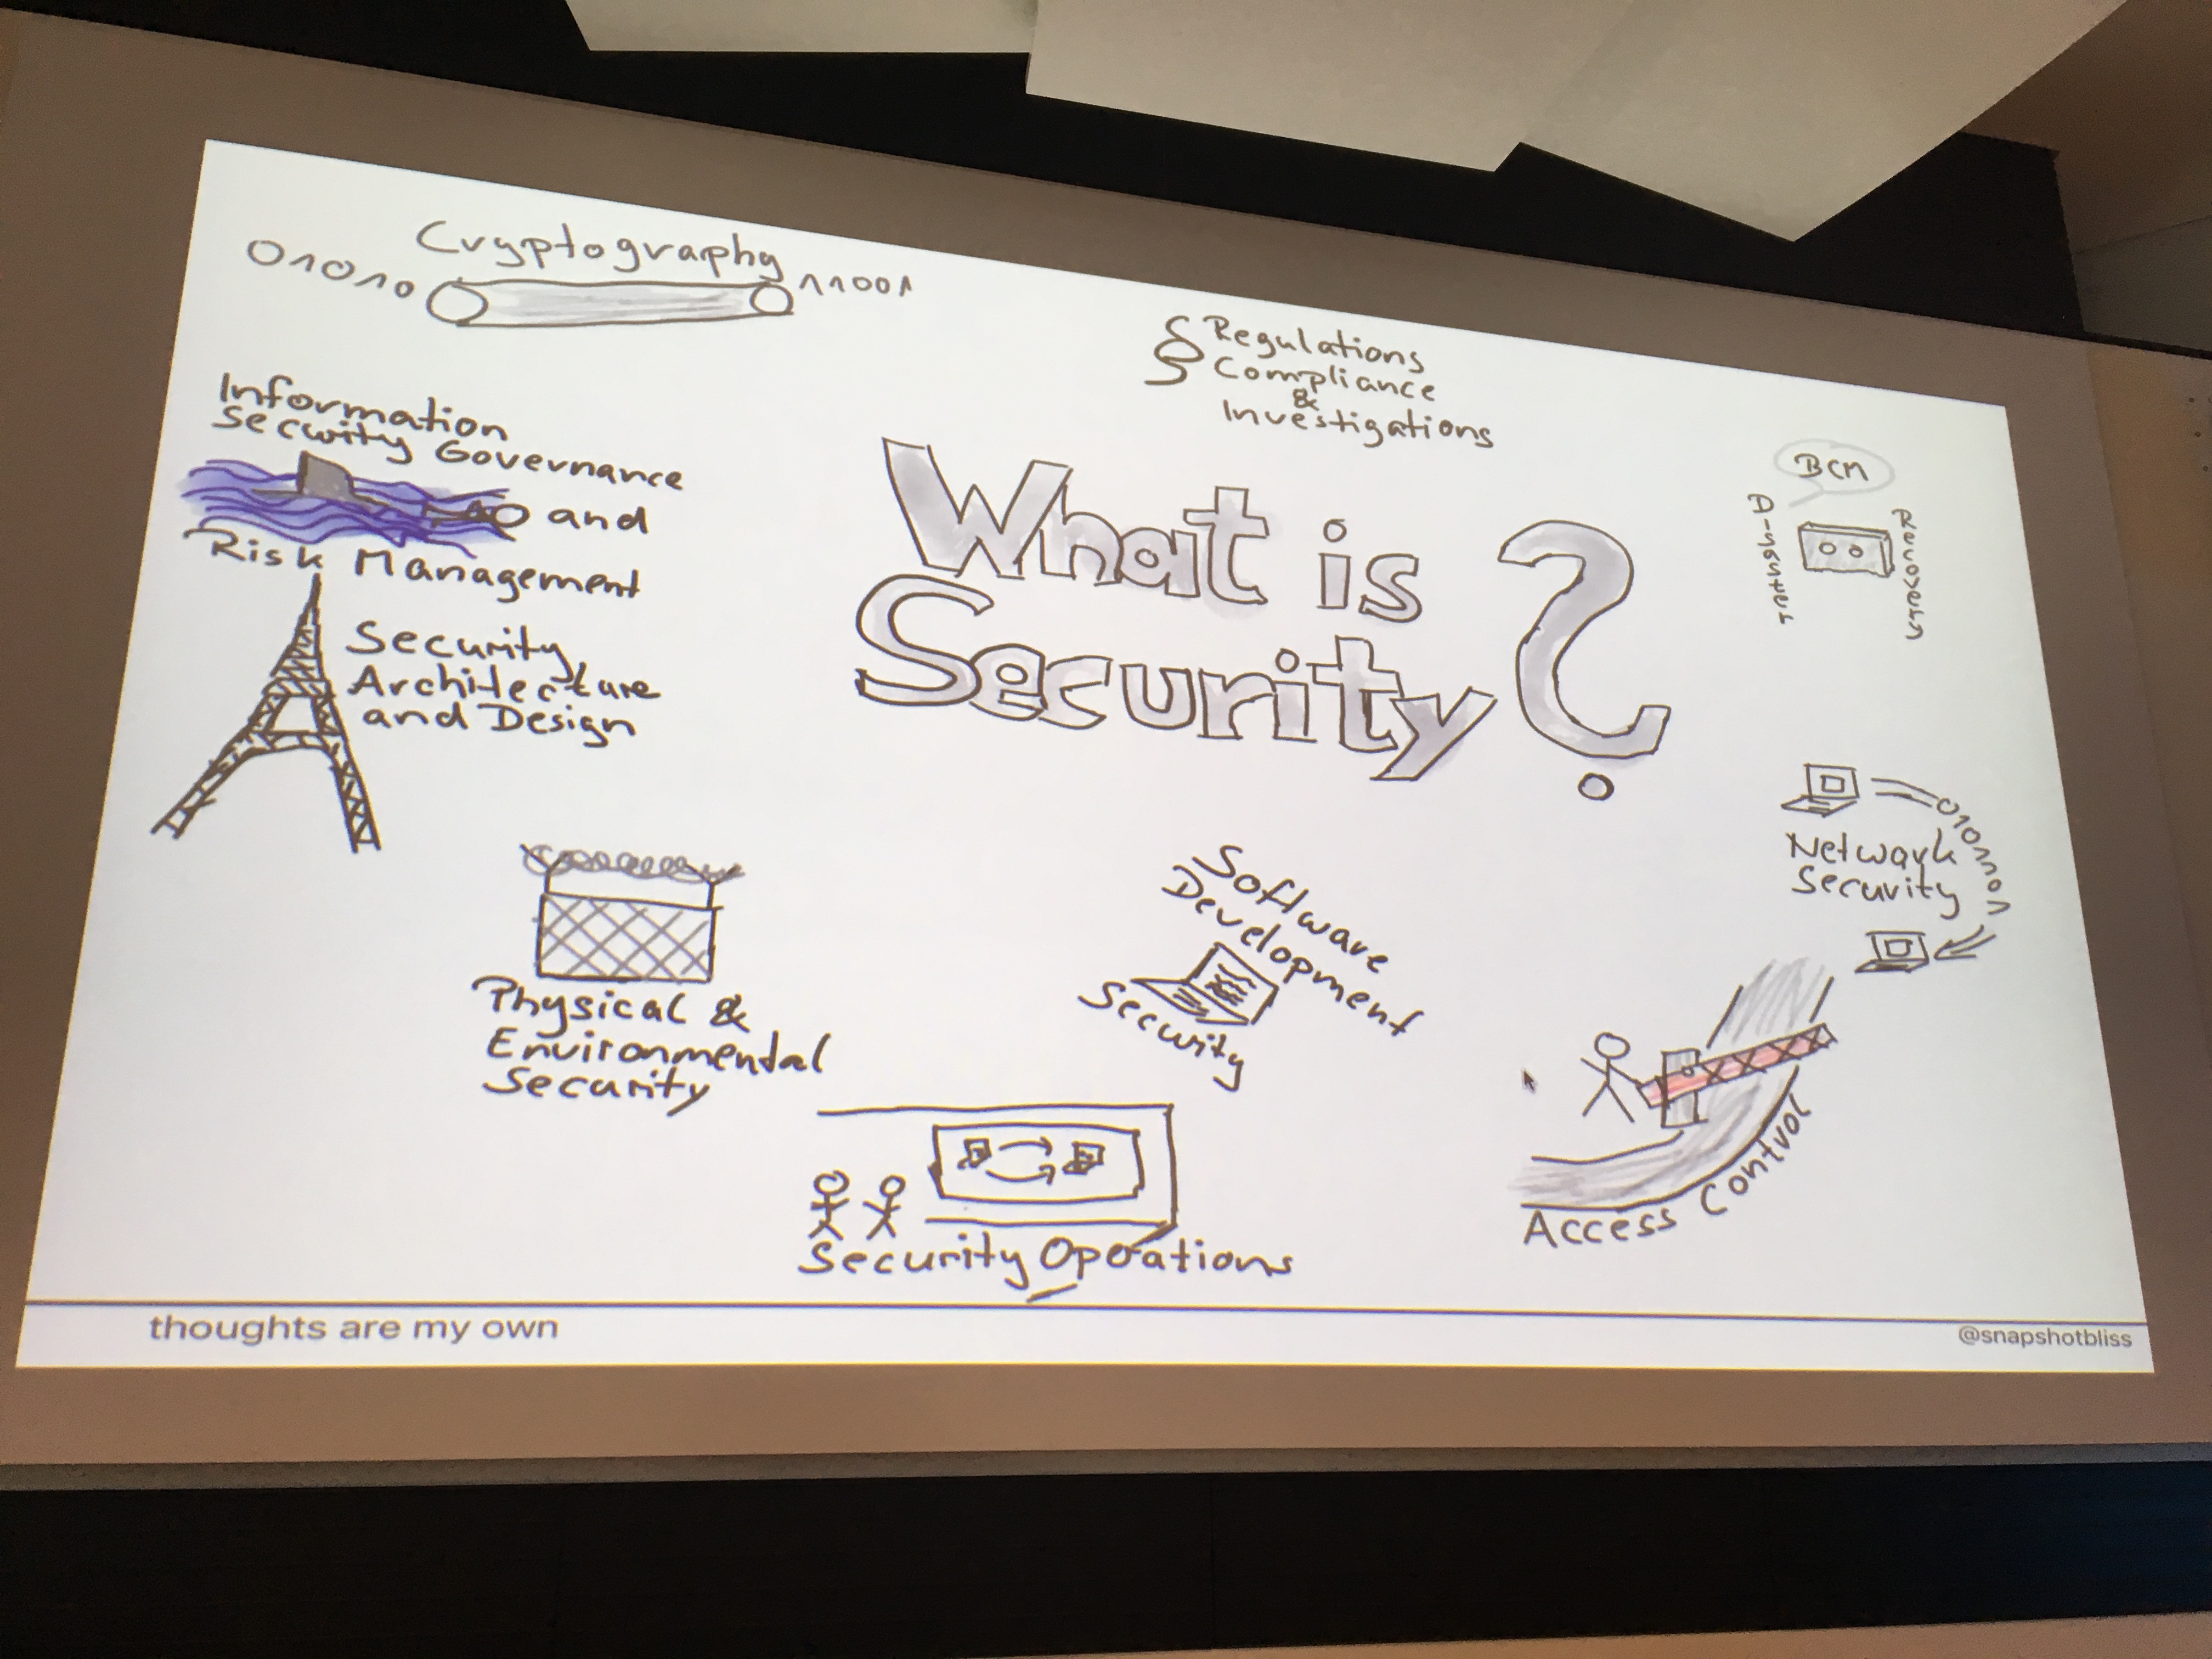 Cryptography
01010
11001
§ Regulations
Compliance
&
Investigations
Information
Security Governance
and
Risk Management
What is
Security?
BCM
Recovery
Security
Architecture
and Design
Network
Security
0101101
Software
Development
Security
Physical &
Environmental
Security
Access Control
Security Operations
thoughts are my own
@snapshotbliss